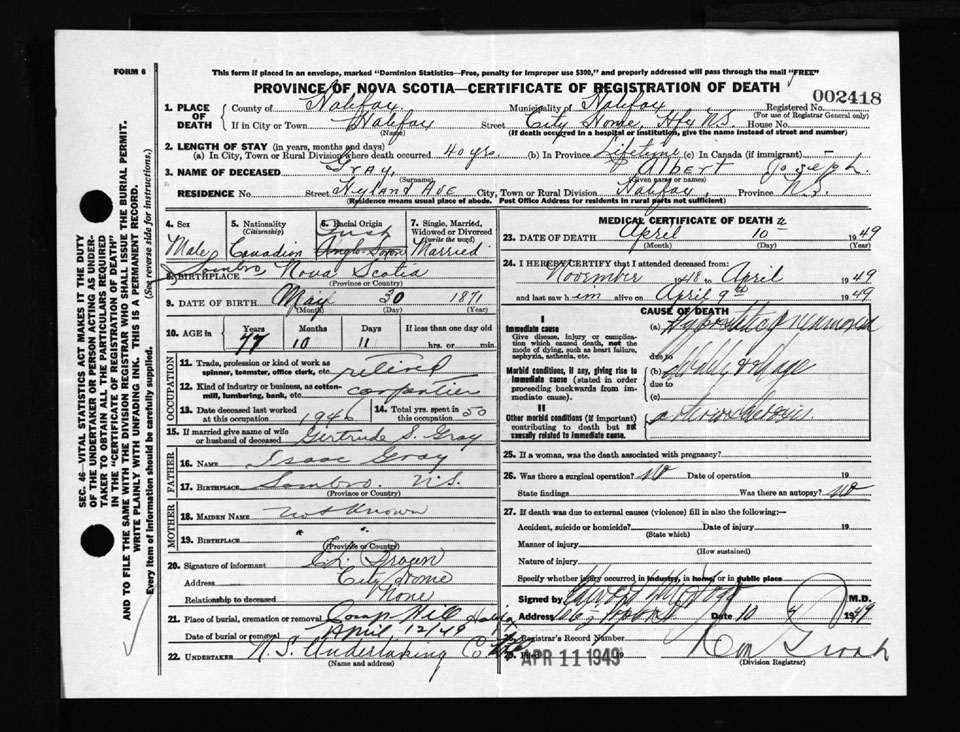 FORM 6
This form if placed in an envelope, marked "Dominion Statistics—Free, penalty for improper use $300," and properly addressed will pass through the mail "FREE"
PROVINCE OF NOVA SCOTIA—CERTIFICATE OF REGISTRATION OF DEATH
002418
1. PLACE OF DEATH
County of Halifax. Municipality of Halifax Registered No.
(For use of Registrar General only)
If in City or Town Halifax Street City Home, Hfx N.S. House No.
(Name) (If death occurred in a hospital or institution, give the name instead of street and number)
2. LENGTH OF STAY (in years, months and days)
(a) In City, Town or Rural Division where death occurred 40 yrs. (b) In Province Lifetime (c) In Canada (if immigrant)
3. NAME OF DECEASED Gray, Albert Joseph
(Surname) (Given name or names)
RESIDENCE No. Street Hyland Ave City, Town or Rural Division Halifax, Province N.S.
(Residence means usual place of abode. Post Office Address for residents in rural parts not sufficient)
4. Sex
Male
5. Nationality
(Citizenship)
Canadian
6. Racial Origin
7. Single, Married, Widowed or Divorced
(write the word)
Married
8. BIRTHPLACE Sambro Nova Scotia
(Province or Country)
9. DATE OF BIRTH May 30 1871
(Month) (Day) (Year)
10. AGE in Years Months Days If less than one day old
77 10 11 hrs. or min.
OCCUPATION
11. Trade, profession or kind of work as spinner, teamster, office clerk, etc. retired
12. Kind of industry or business, as cotton-mill, lumbering, bank, etc. carpenter
13. Date deceased last worked at this occupation 1946
14. Total yrs. spent in this occupation 50
15. If married give name of wife or husband of deceased Gertrude S. Gray
FATHER
16. NAME Isaac Gray
17. BIRTHPLACE Sambro. N.S.
(Province or Country)
MOTHER
18. MAIDEN NAME Not Known
19. BIRTHPLACE " "
(Province or Country)
20. Signature of informant
Address City Home
Relationship to deceased None
21. Place of burial, cremation or removal Camp Hill Halifax
Date of burial or removal April 12/49
22. UNDERTAKER N.S. Undertaking Co
(Name and address)
MEDICAL CERTIFICATE OF DEATH
23. DATE OF DEATH April 10th 1949
(Month) (Day) (Year)
24. I HEREBY CERTIFY that I attended deceased from:
November 1948 to April 1949
and last saw him alive on April 9th 1949
CAUSE OF DEATH
I
Immediate cause
Give disease, injury or complication which caused death, not the mode of dying, such as heart failure, asphyxia, asthenia, etc.
(a) Hypostatic Pneumonia
due to
Morbid conditions, if any, giving rise to immediate cause (stated in order proceeding backwards from immediate cause).
(b)
due to
(c)
II
Other morbid conditions (if important) contributing to death but not causally related to immediate cause.
arteriosclerosis.
25. If a woman, was the death associated with pregnancy?
26. Was there a surgical operation? No Date of operation 19
State findings Was there an autopsy? No
27. If death was due to external causes (violence) fill in also the following:—
Accident, suicide or homicide? Date of injury 19
(State which)
Manner of injury
(How sustained)
Nature of injury
Specify whether injury occurred in industry, in home, or in public place
Signed by M.D.
Address Date 10 4 1949
28. Registrar's Record Number
29. Filed APR 11 1949 19
(Division Registrar)
SEC. 46—VITAL STATISTICS ACT MAKES IT THE DUTY OF THE UNDERTAKER OR PERSON ACTING AS UNDERTAKER TO OBTAIN ALL THE PARTICULARS REQUIRED IN THE "CERTIFICATE OF REGISTRATION OF DEATH"
AND TO FILE THE SAME WITH THE DIVISION REGISTRAR WHO SHALL ISSUE THE BURIAL PERMIT.
WRITE PLAINLY WITH UNFADING INK. THIS IS A PERMANENT RECORD.
Every item of information should be carefully supplied. (See reverse side for instructions.)